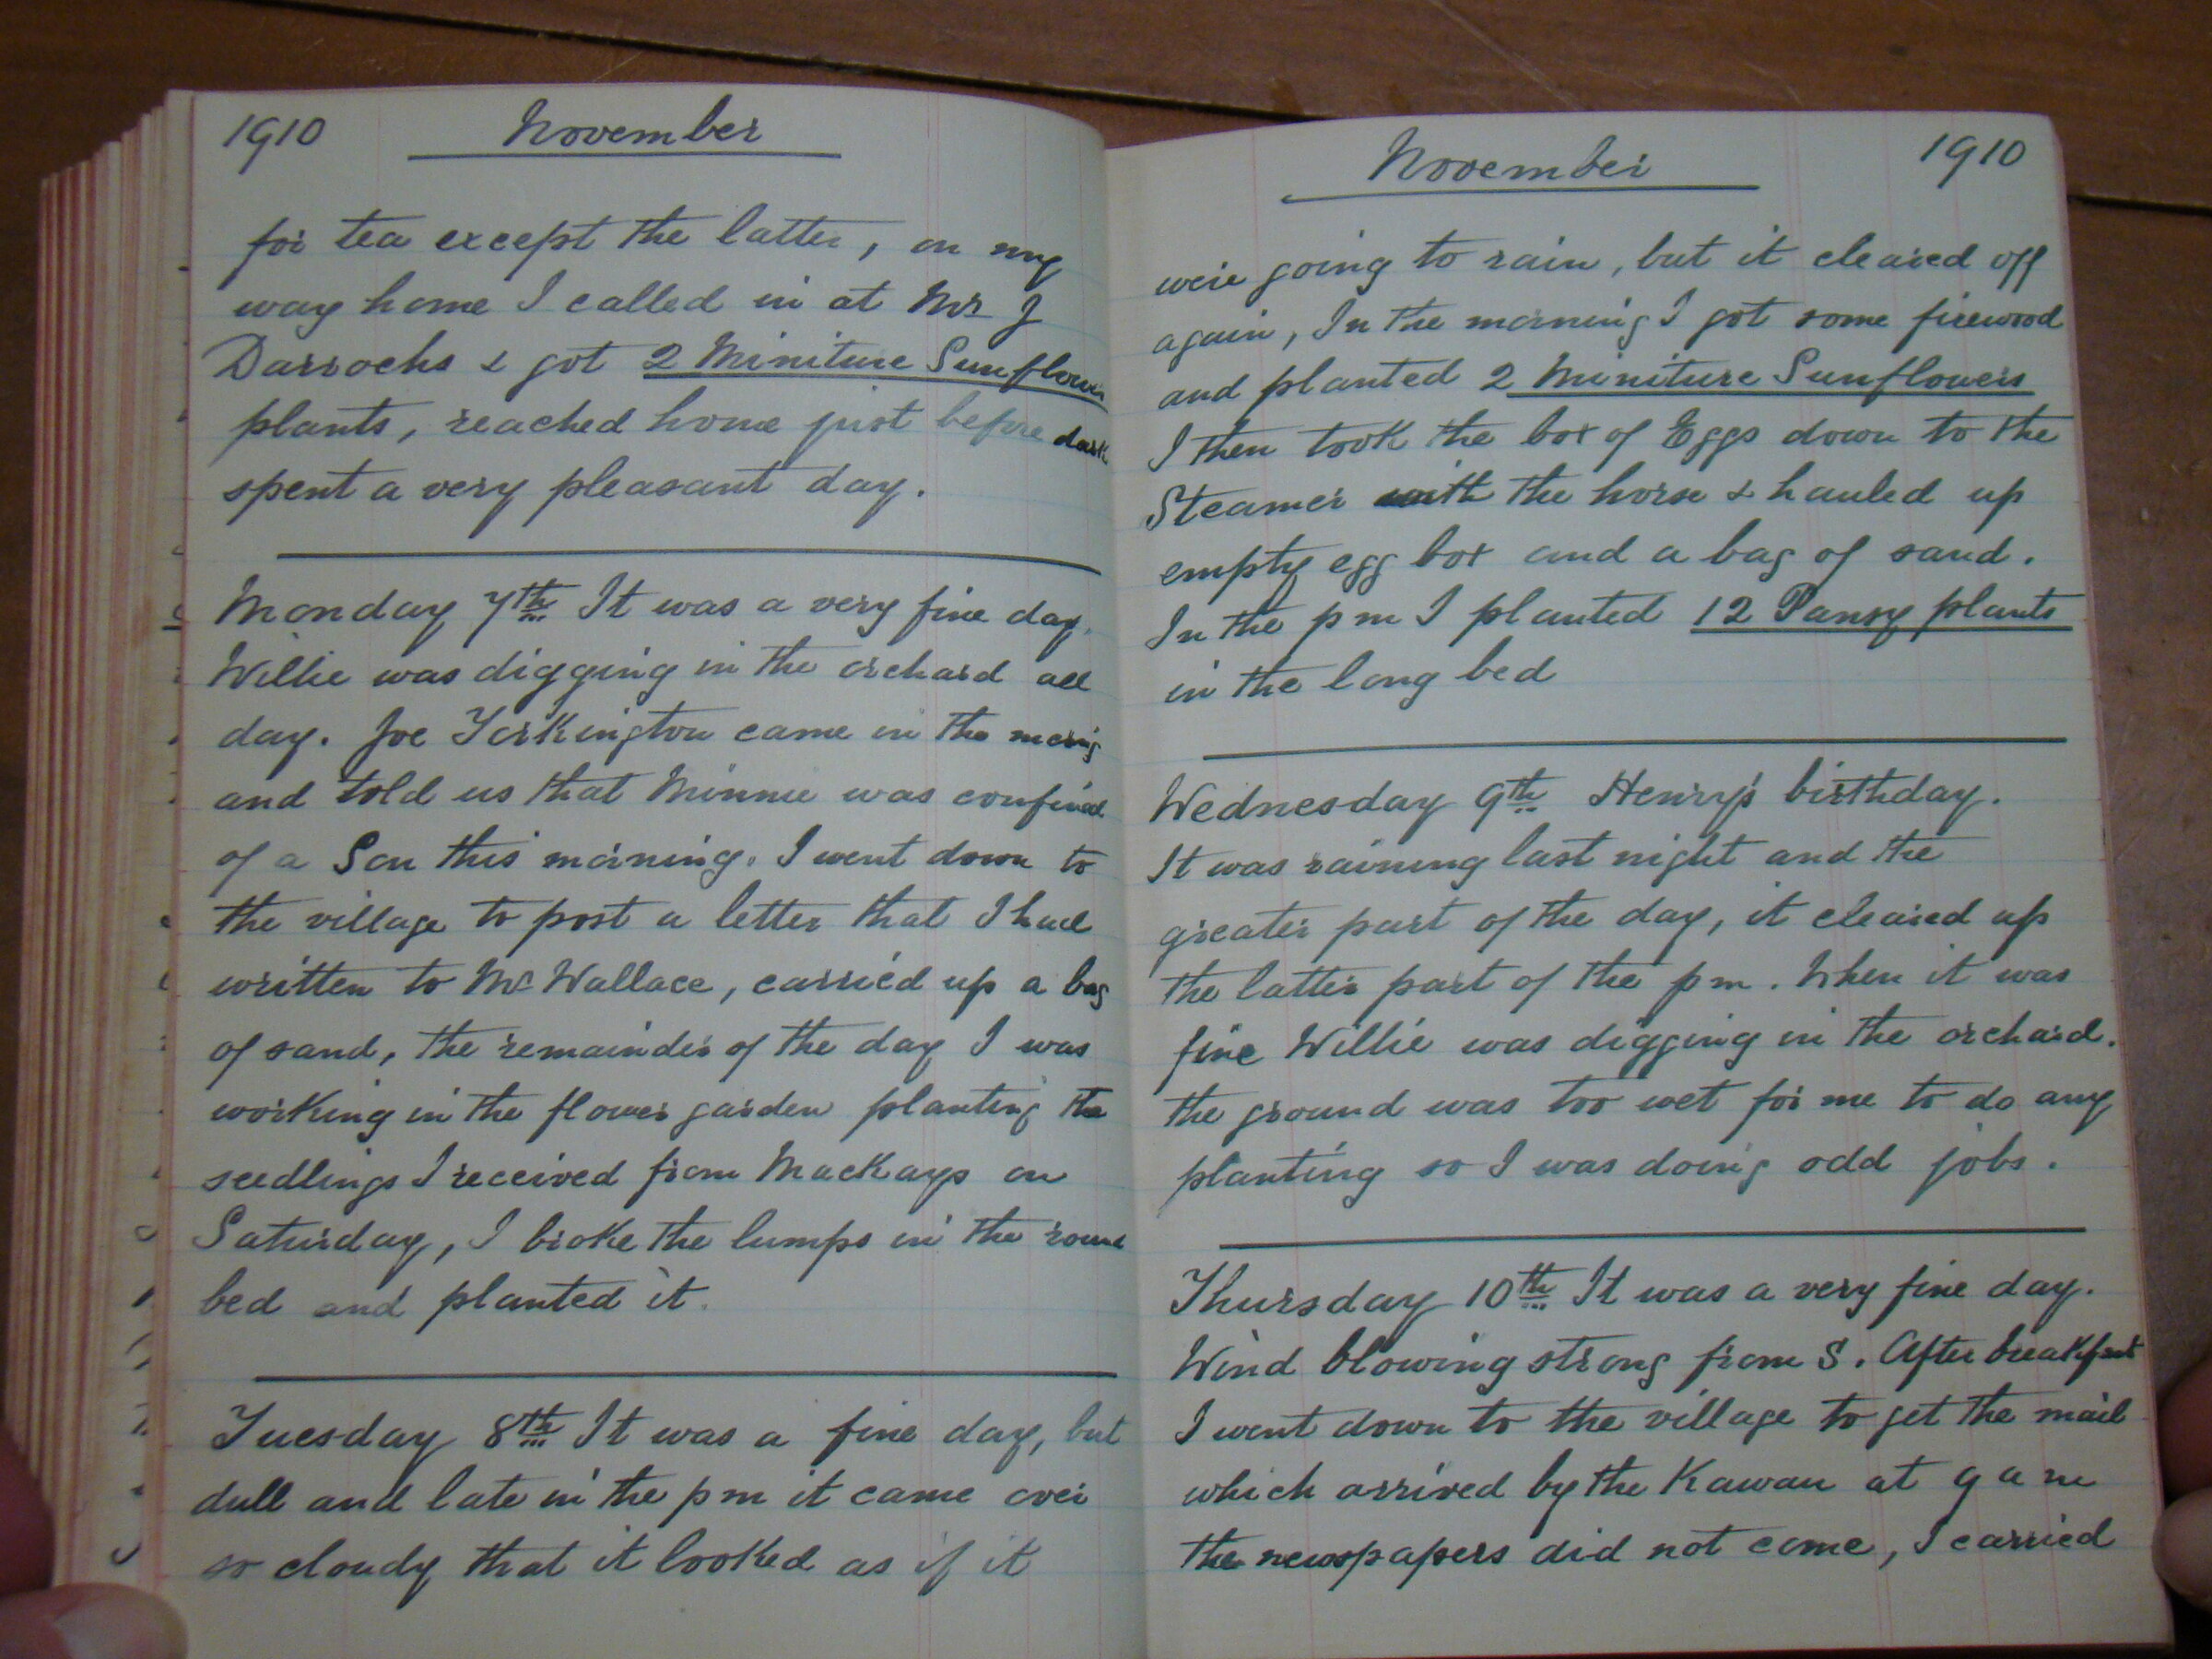 1910 November
for tea except the latter, on my
way home I called in at Mr J
Darrochs & got 2 Miniture Sunflower
plants, reached home just before dark
spent a very pleasant day.
Monday 7th It was a very fine day.
Willie was digging in the orchard all
day. Joe Torkington came in the morng
and told us that Minnie was confined
of a Son this morning. I went down to
the village to post a letter that I had
written to Mr Wallace, carried up a bag
of sand, the remainder of the day I was
working in the flower garden planting the
seedlings I received from MacKays on
Saturday, I broke the lumps in the round
bed and planted it.
Tuesday 8th It was a fine day, but
dull and late in the pm it came over
so cloudy that it looked as if it
November 1910
were going to rain, but it cleared off
again, In the morning I got some firewood
and planted 2 Miniture Sunflowers
I then took the box of Eggs down to the
Steamer with the horse & hauled up
empty egg box and a bag of sand.
In the pm I planted 12 Pansy plants
in the long bed
Wednesday 9th Henry's birthday.
It was raining last night and the
greater part of the day, it cleared up
the latter part of the pm. When it was
fine Willie was digging in the orchard.
the ground was too wet for me to do any
planting so I was doing odd jobs.
Thursday 10th It was a very fine day.
Wind blowing strong from S. After breakfast
I went down to the village to get the mail
which arrived by the Kawau at 9 am
the newspapers did not come, I carried